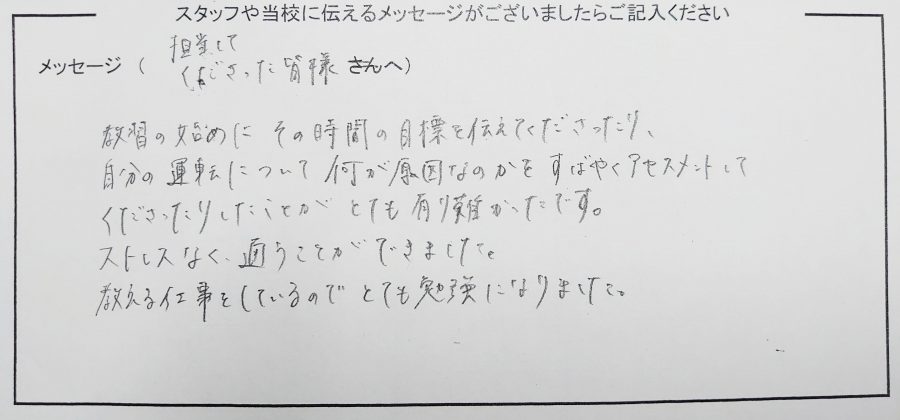 スタッフや当校に伝えるメッセージがございましたらご記入ください
メッセージ ( 担当して
くださった皆様 さんへ)
教習の始めに その時間の目標を伝えてくださったり、
自分の運転について何が原因なのかを すばやくアセスメントして
くださったりしたことが とても有り難かったです。
ストレスなく、通うことができました。
教える仕事をしているので とても勉強になりました。